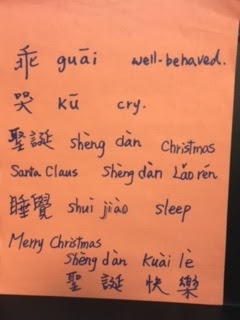 乖 guāi well-behaved.
哭 kū cry.
聖誕 shèng dàn Christmas
Santa Claus Shèng dàn Lǎo rén
睡覺 shuì jiào sleep
Merry Christmas
Shèng dàn Kuài lè
聖誕 快樂